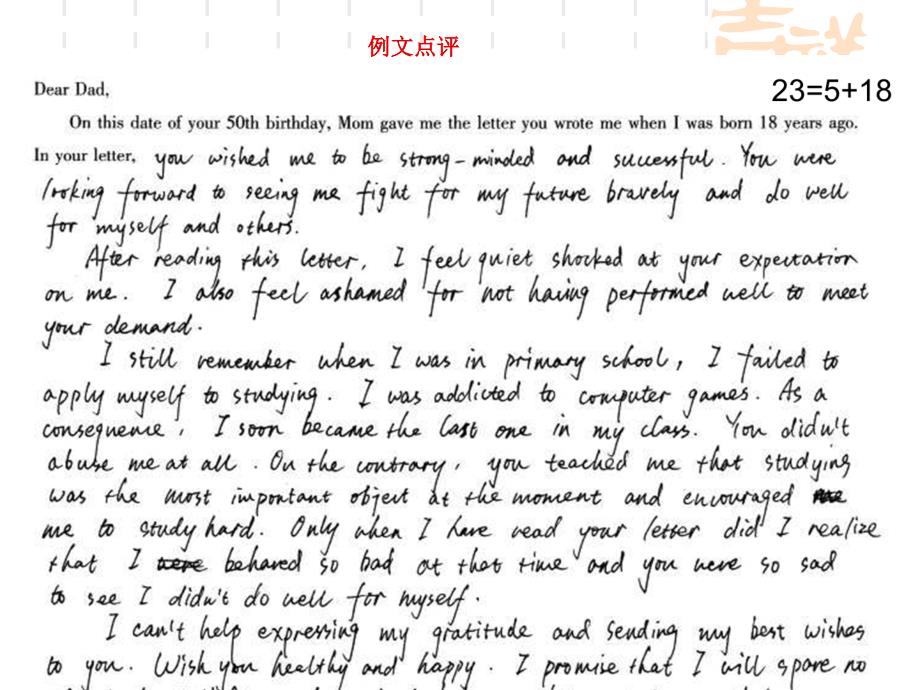 例文点评
23=5+18
Dear Dad,
On this date of your 50th birthday, Mom gave me the letter you wrote me when I was born 18 years ago.
In your letter, you wished me to be strong-minded and successful. You were
looking forward to seeing me fight for my future bravely and do well
for myself and others.
After reading this letter, I feel quiet shocked at your expectation
on me. I also feel ashamed for not having performed well to meet
your demand.
I still remember when I was in primary school, I failed to
apply myself to studying. I was addicted to computer games. As a
consequence, I soon became the last one in my class. You didn't
abuse me at all. On the contrary, you teached me that studying
was the most important object at the moment and encouraged
me to study hard. Only when I have read your letter did I realize
that I were behaved so bad at that time and you were so sad
to see I didn't do well for myself.
I can't help expressing my gratitude and sending my best wishes
to you. Wish you healthy and happy. I promise that I will spare no